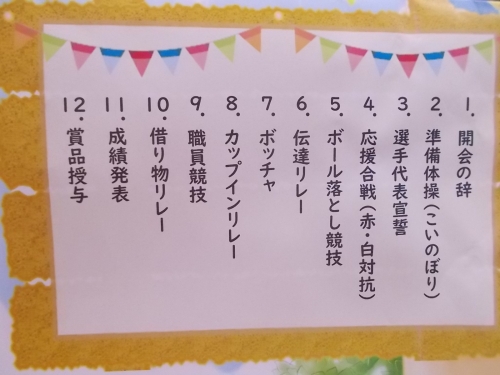 1. 開会の辞
2. 準備体操(こいのぼり)
3. 選手代表宣誓
4. 応援合戦(赤・白対抗)
5. ボール落とし競技
6. 伝達リレー
7. ボッチャ
8. カップインリレー
9. 職員競技
10. 借り物リレー
11. 成績発表
12. 賞品授与